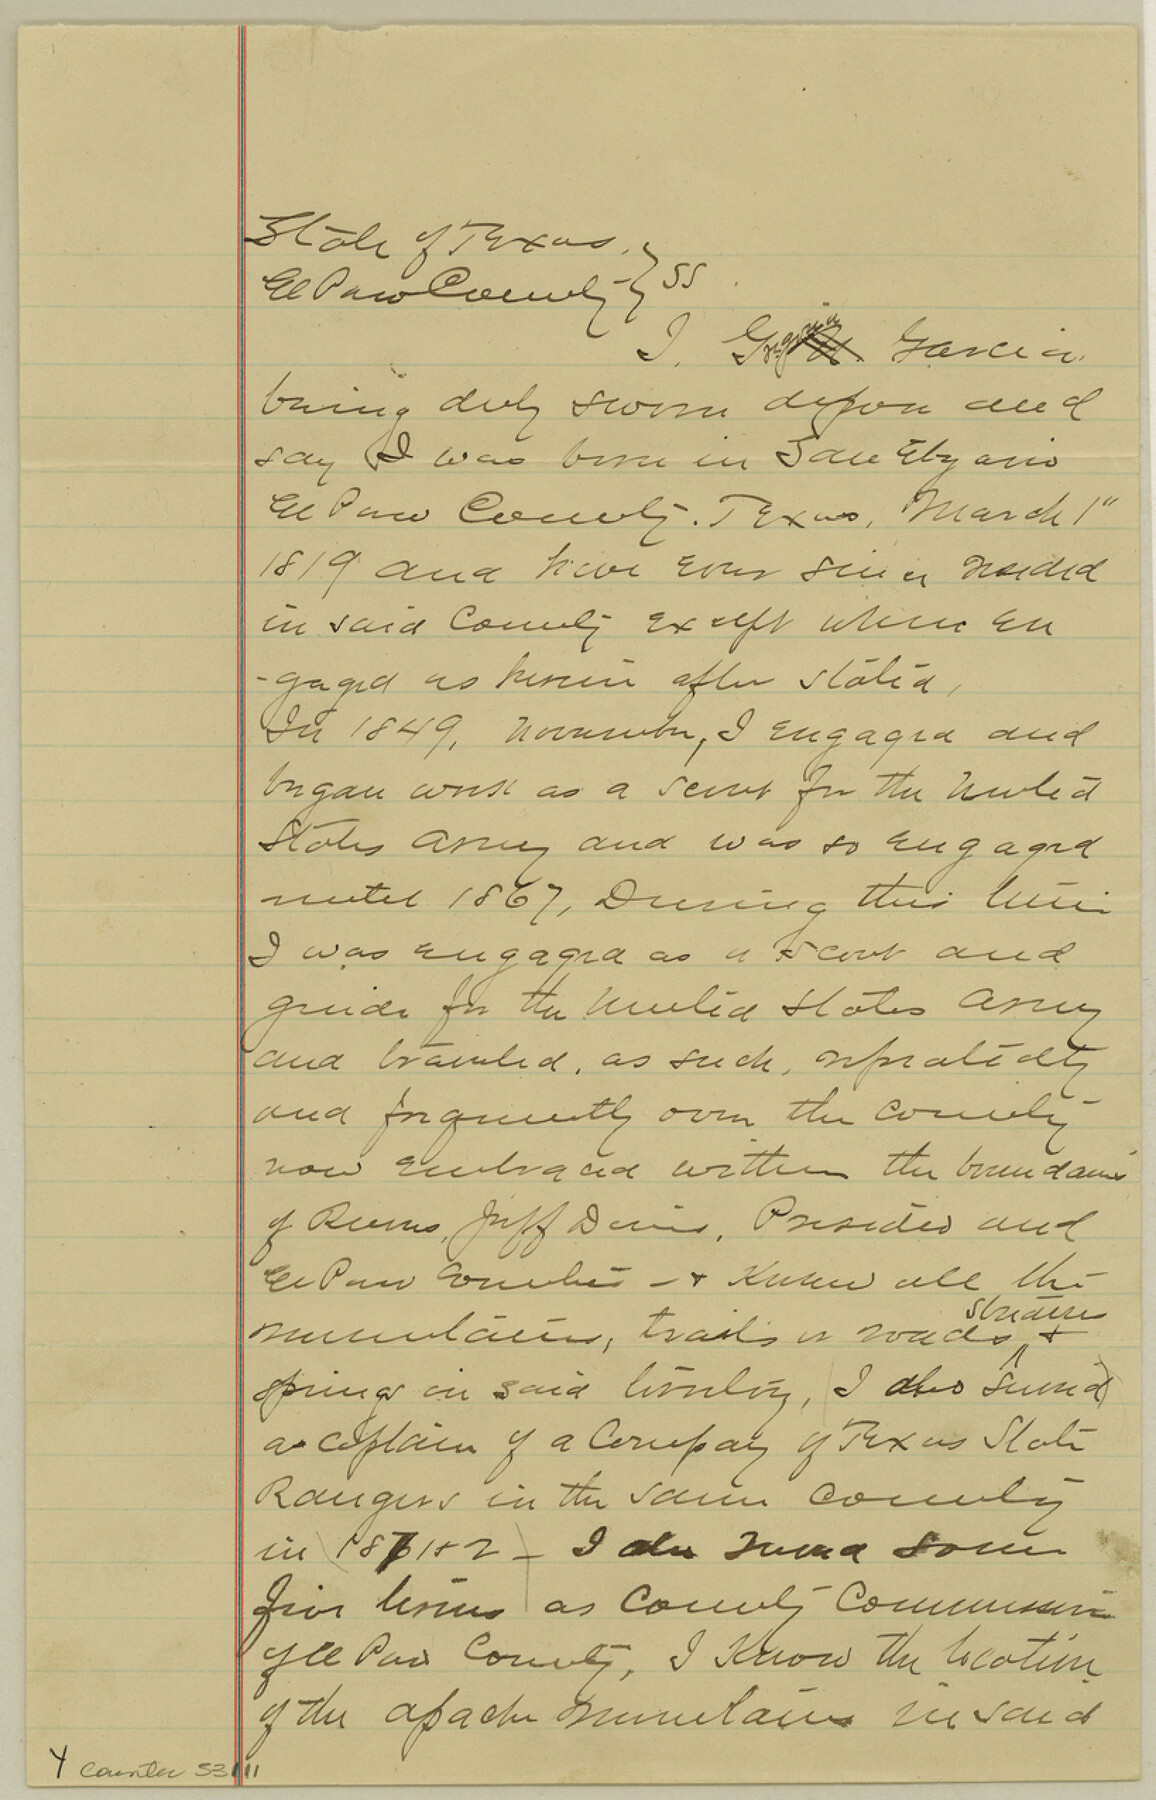 State of Texas. }
El Paso County } SS.
I. Gregorio N. Garcia
being duly sworn depose and
say I was born in San Elizario
El Paso County. Texas, March 1"
1819 and have ever since resided
in said County except when en
-gaged as herein after stated,
In 1849, November, I engaged and
began work as a scout for the United
States Army and was so engaged
until 1867, During this time
I was engaged as a scout and
guide for the United States Army
and traveled, as such, repeatedly
and frequently over the country
now embraced within the boundaries
of Reeves, Jeff Davis, Presidio and
El Paso Counties - & Knew all the
mountains, trails or roads, streams &
springs in said territory, (I also served)
as captain of a Company of Texas State
Rangers in the same County
in 1871 & 2 - I also served some
five terms as County Commissioner
of El Paso County, I Know the location
of the apache Mountains in said
Y counter 53111